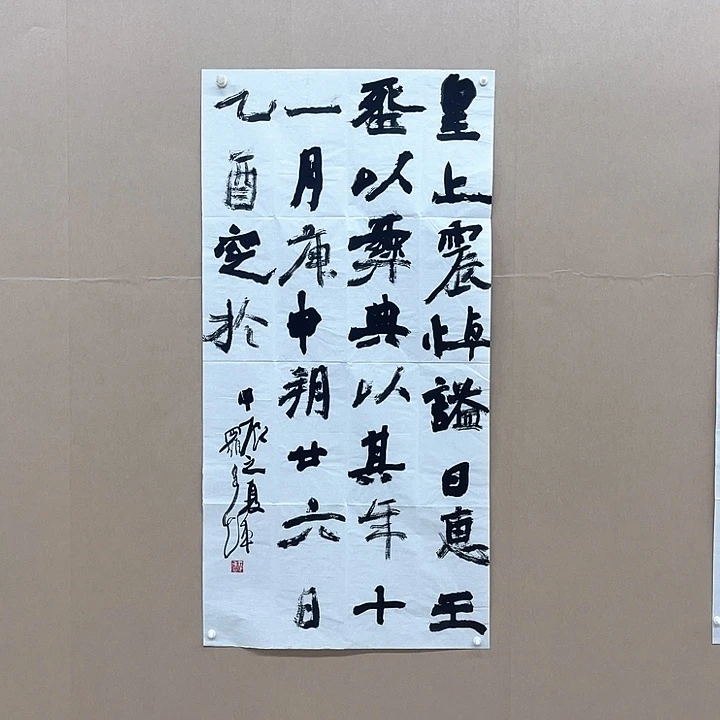 皇上震悼謚曰惠王
葬以彝典以其年十
一月庚申朔廿六日
乙酉窆於
甲辰之夏